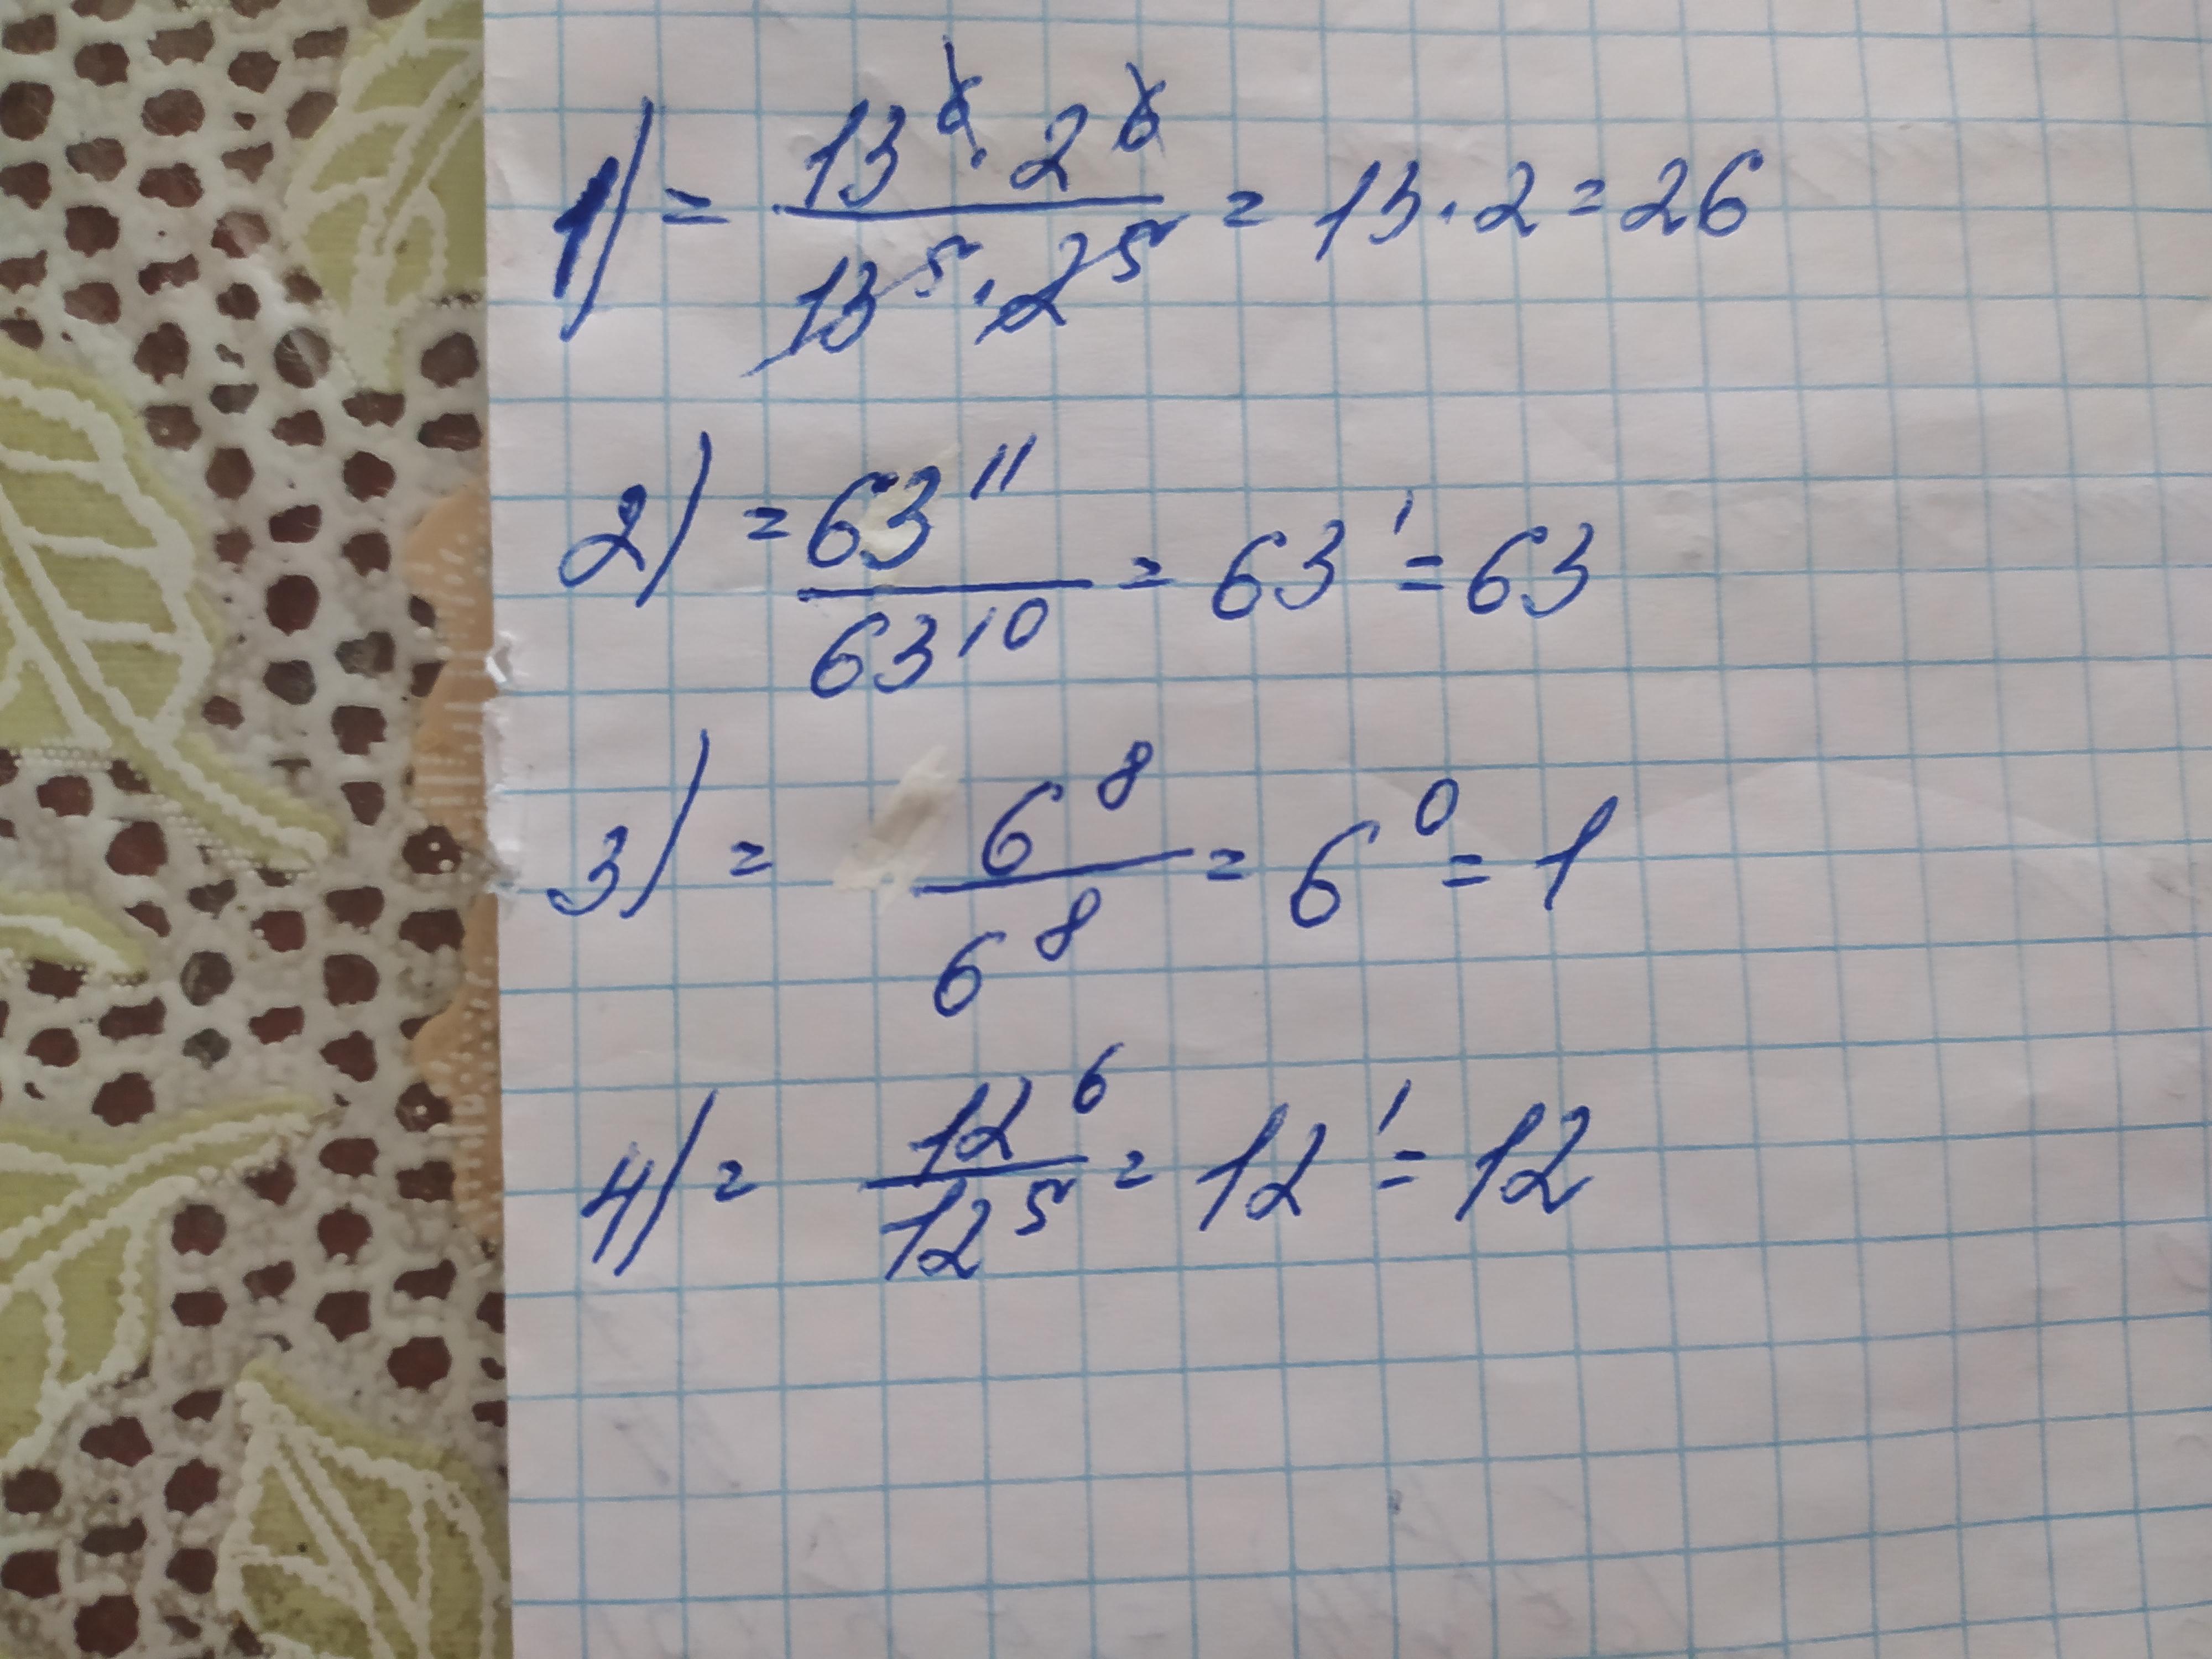 1) = 13⁶ · 2⁶ / 13⁵ · 2⁵ = 13 · 2 = 26
2) = 63¹¹ / 63¹⁰ = 63¹ = 63
3) = 6⁸ / 6⁸ = 6⁰ = 1
4) = 12⁶ / 12⁵ = 12¹ = 12